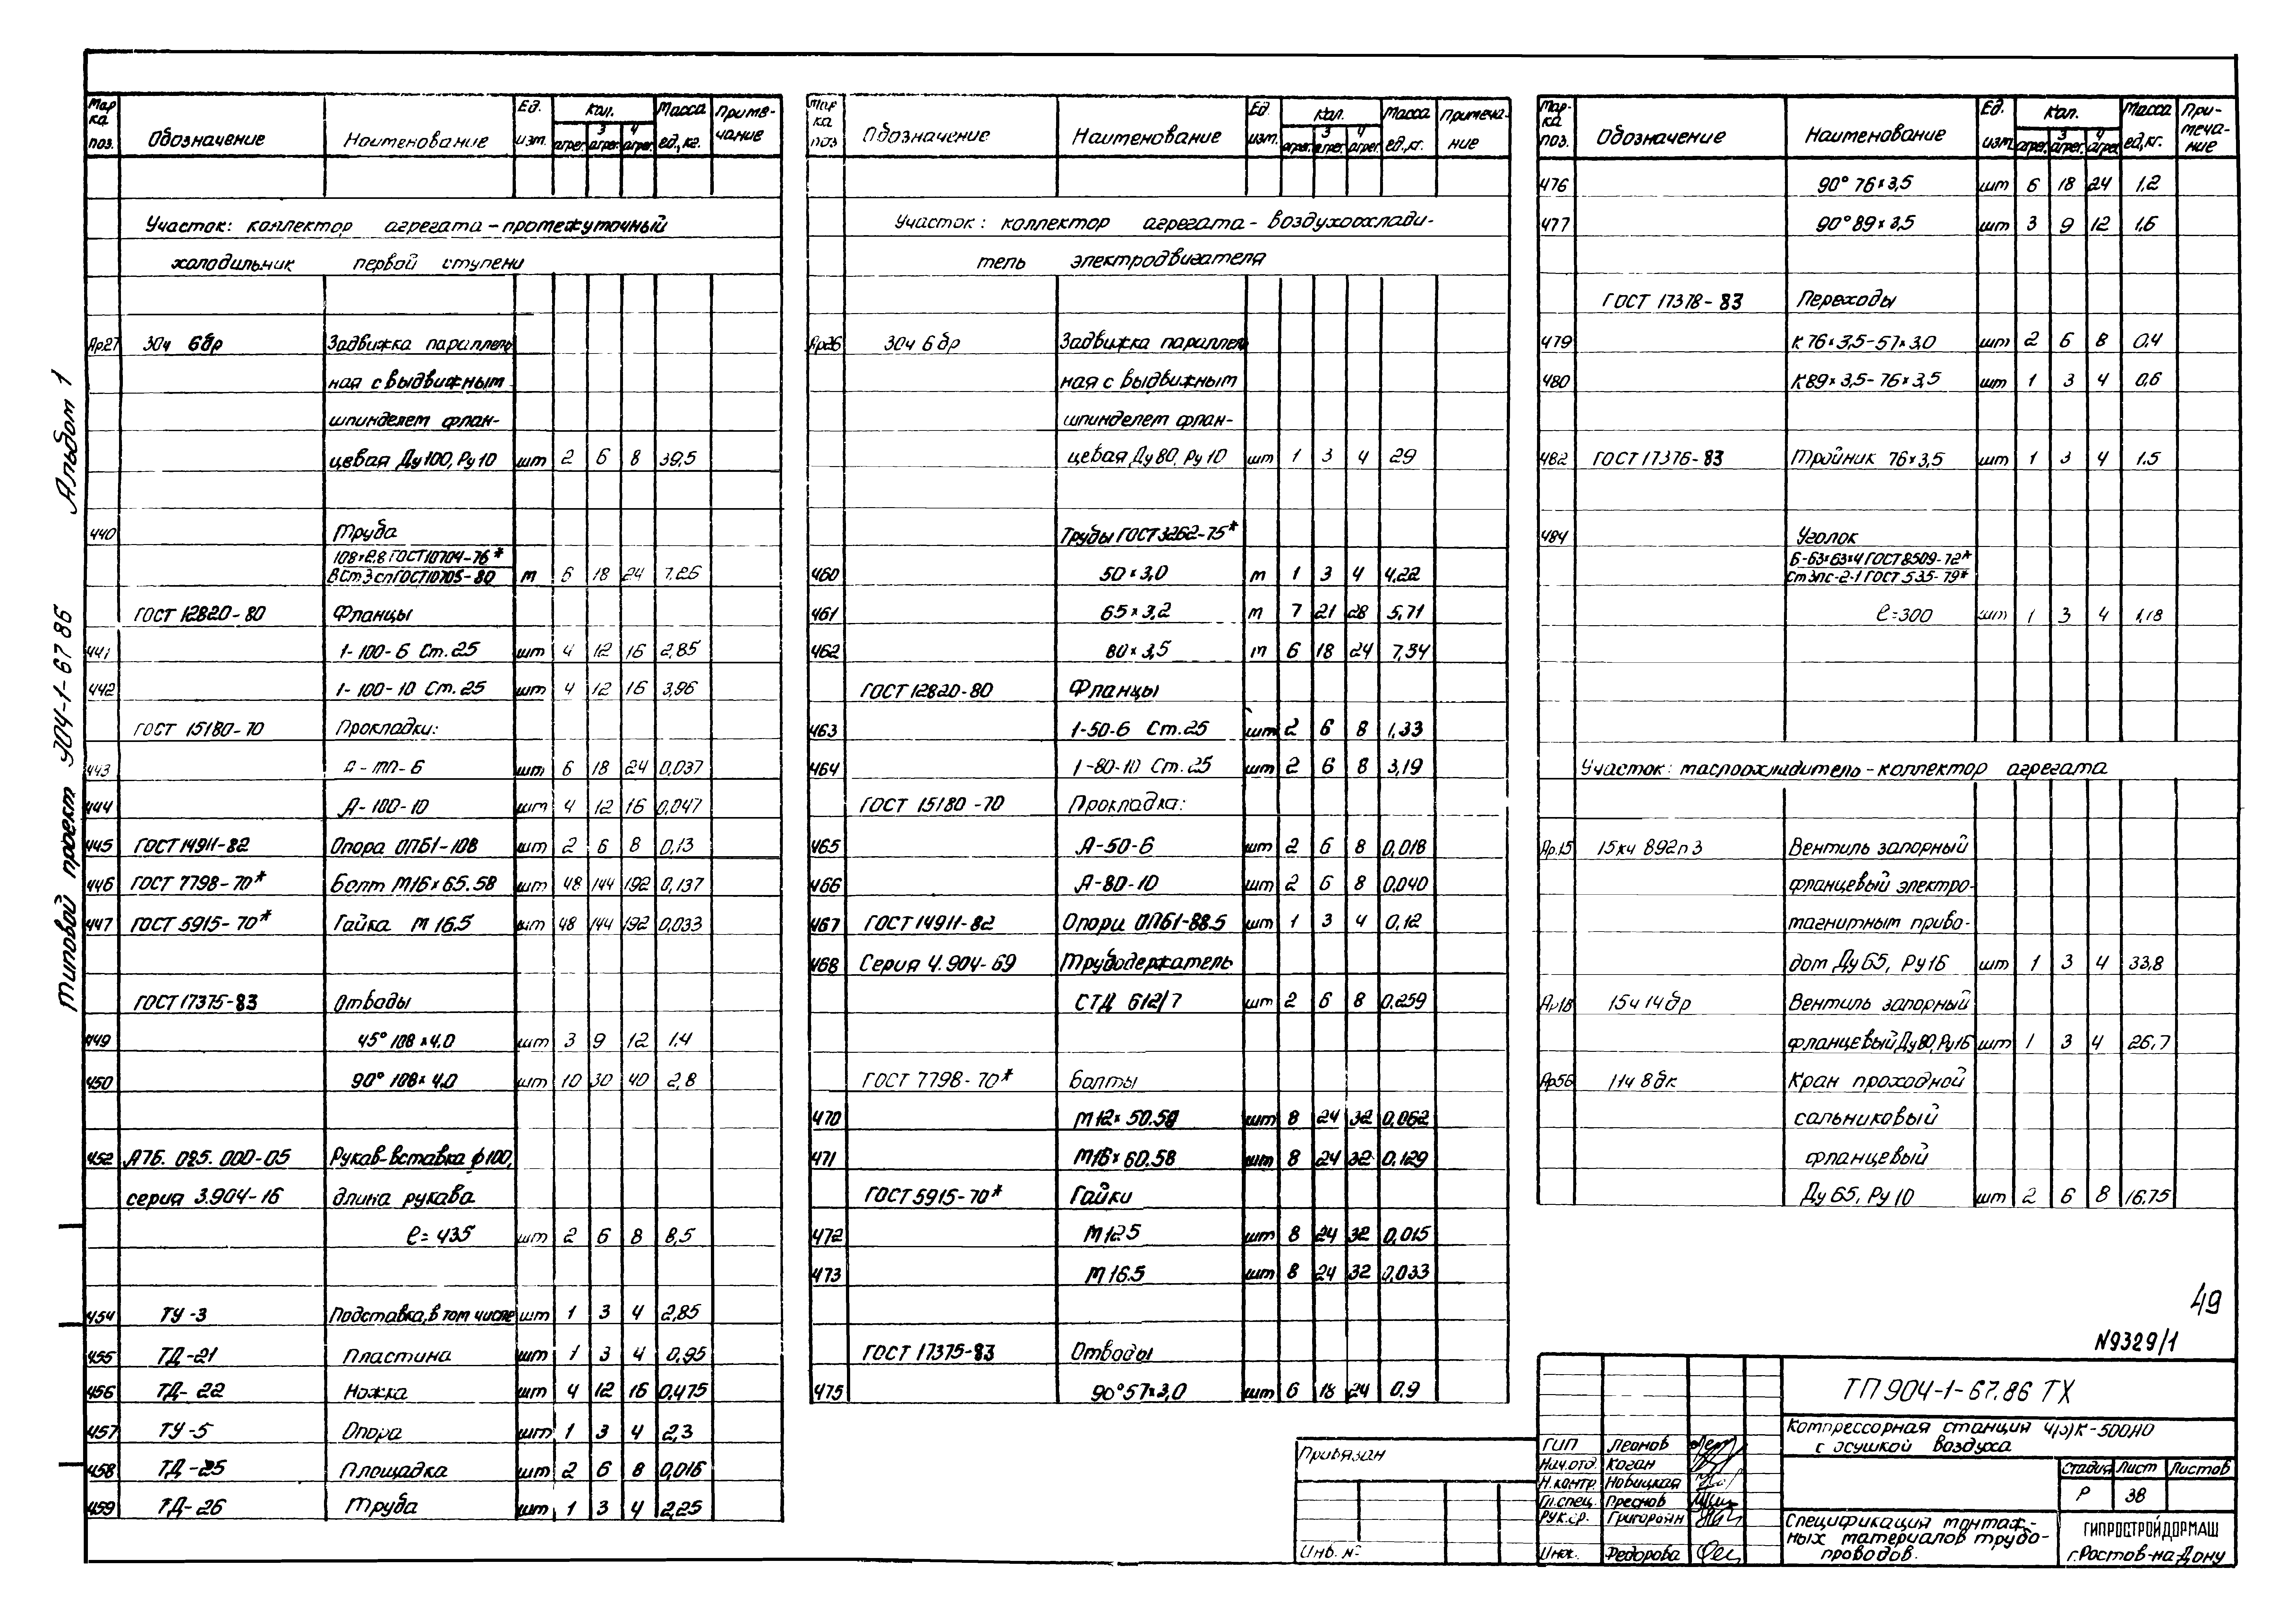 Типовой проект 904-1-67 86 Альбом 1
Марка поз. Обозначение Наименование Ед. изм. Кол. агрег. 3 агрег. 4 агрег. Масса ед., кг. Примечание
Участок: коллектор агрегата - промежуточный
холодильник первой ступени
Ар27 30ч 6бр Задвижка параллель
ная с выдвижным
шпинделем флан-
цевая Ду 100, Ру 10 шт 2 6 8 39,5
440 Труба
108×2,8 ГОСТ 10704-76*
В Ст 3 сп ГОСТ 10705-80 м 6 18 24 7,26
ГОСТ 12820-80 Фланцы
441 1-100-6 Ст.25 шт 4 12 16 2,85
442 1-100-10 Ст.25 шт 4 12 16 3,96
ГОСТ 15180-70 Прокладки:
443 шт 6 18 24 0,037
444 А-100-10 шт 4 12 16 0,047
445 ГОСТ 14911-82 Опора ОПБ1-108 шт 2 6 8 0,13
446 ГОСТ 7798-70* Болт М16×65.58 шт 48 144 192 0,137
447 ГОСТ 5915-70* Гайка М 16.5 шт 48 144 192 0,033
ГОСТ 17375-83 Отводы
449 45° 108×4,0 шт 3 9 12 1,4
450 90° 108×4,0 шт 10 30 40 2,8
452 А7Б. 085. 000-05 Рукав-вставка ф100,
серия 3.904-16 длина рукава
ℓ= 435 шт 2 6 8 8,5
454 ТУ-3 Подставка, в том числе шт 1 3 4 2,85
455 ТД-21 Пластина шт 1 3 4 0,95
456 ТД-22 Ножка шт 4 12 16 0,475
457 ТУ-5 Опора шт 1 3 4 2,3
458 ТД-25 Площадка шт 2 6 8 0,016
459 ТД-26 Труба шт 1 3 4 2,25
Марка поз Обозначение Наименование Ед. изм. Кол. агрег. 3 агрег. 4 агрег. Масса ед., кг. Примечание
Участок: коллектор агрегата - воздухоохлади-
тель электродвигателя
Ар26 30ч 6бр Задвижка параллел
ная с выдвижным
шпинделем флан-
цевая, Ду 80, Ру 10 шт 1 3 4 29
Трубы ГОСТ 3262-75*
460 50×3,0 м 1 3 4 4,22
461 65×3,2 м 7 21 28 5,71
462 80×3,5 м 6 18 24 7,34
ГОСТ 12820-80 Фланцы
463 1-50-6 Ст.25 шт 2 6 8 1,33
464 1-80-10 Ст.25 шт 2 6 8 3,19
ГОСТ 15180-70 Прокладка:
465 А-50-6 шт 2 6 8 0,018
466 А-80-10 шт 2 6 8 0,040
467 ГОСТ 14911-82 Опори ОПБ1-88.5 шт 1 3 4 0,12
468 Серия 4.904-69 Трубодержатель
СТД 612/7 шт 2 6 8 0,259
ГОСТ 7798-70* Болты
470 М12×50.58 шт 8 24 32 0,062
471 М16×60.58 шт 8 24 32 0,129
ГОСТ 5915-70* Гайки
472 М12 5 шт 8 24 32 0,015
473 М 16.5 шт 8 24 32 0,033
ГОСТ 17375-83 Отводы
475 90° 57×3,0 шт 6 18 24 0,9
Марка поз. Обозначение Наименование Ед. изм Кол. агрег. 3 агрег. 4 агрег Масса ед, кг. Примечание
476 90° 76×3,5 шт 6 18 24 1,2
477 90° 89×3,5 шт 3 9 12 1,6
ГОСТ 17378-83 Переходы
479 К 76×3,5-57×3,0 шт 2 6 8 0,4
480 К 89×3,5-76×3,5 шт 1 3 4 0,6
482 ГОСТ 17376-83 Тройник 76×3,5 шт 1 3 4 1.5
484 Уголок
Б-63×63×4 ГОСТ 8509-72*
Ст3пс-2-1 ГОСТ 535-79*
ℓ=300 шт 1 3 4 1,18
Участок: маслоохладитель-коллектор агрегата
Ар.15 15кч 892п3 Вентиль запорный
фланцевый электро-
магнитным приво-
дом Ду 65, Ру 16 шт 1 3 4 33,8
Ар18 15ч 14бр Вентиль запорный
фланцевый Ду 80, Ру 16 шт 1 3 4 26,7
Ар56 11ч 8бк Кран проходной
сальниковый
фланцевый
Ду 65, Ру 10 шт 2 6 8 16,75
49
N9329/1
Привязан
Инв. №
ГИП Леонов
Нач.отд Коган
Н.контр. Новицкая
Гл.спец. Преснов
Рук.гр. Григорьян
Инж. Федорова
ТП 904-1-67.86 ТХ
Компрессорная станция 4(3)К-500АО
с осушкой воздуха
Стадия Лист Листов
Р 38
Спецификация монтаж-
ных материалов трубо-
проводов.
ГИПРОСТРОЙДОРМАШ
г.Ростов-на-Дону